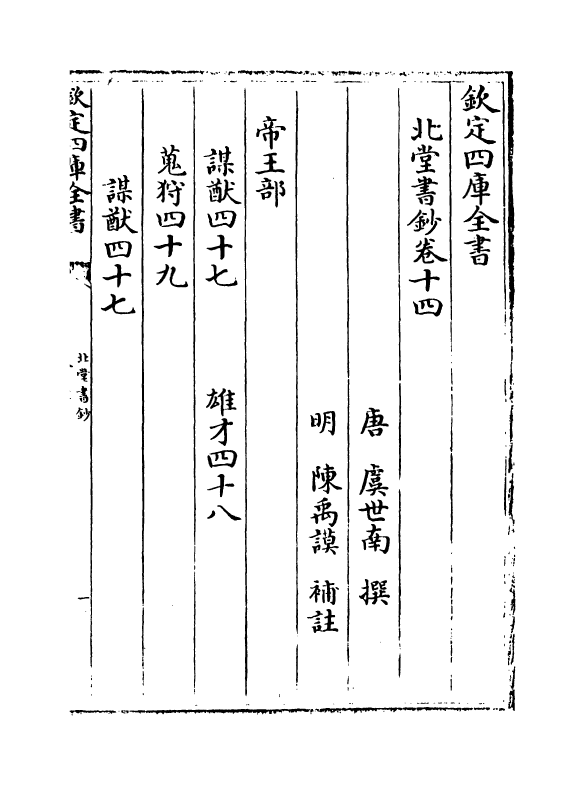 欽定四庫全書
北堂書鈔卷十四
唐 虞世南 撰
明 陳禹謨 補註
帝王部
謀猷四十七 雄才四十八
蒐狩四十九
謀猷四十七
欽定四庫全書
北堂書鈔
一